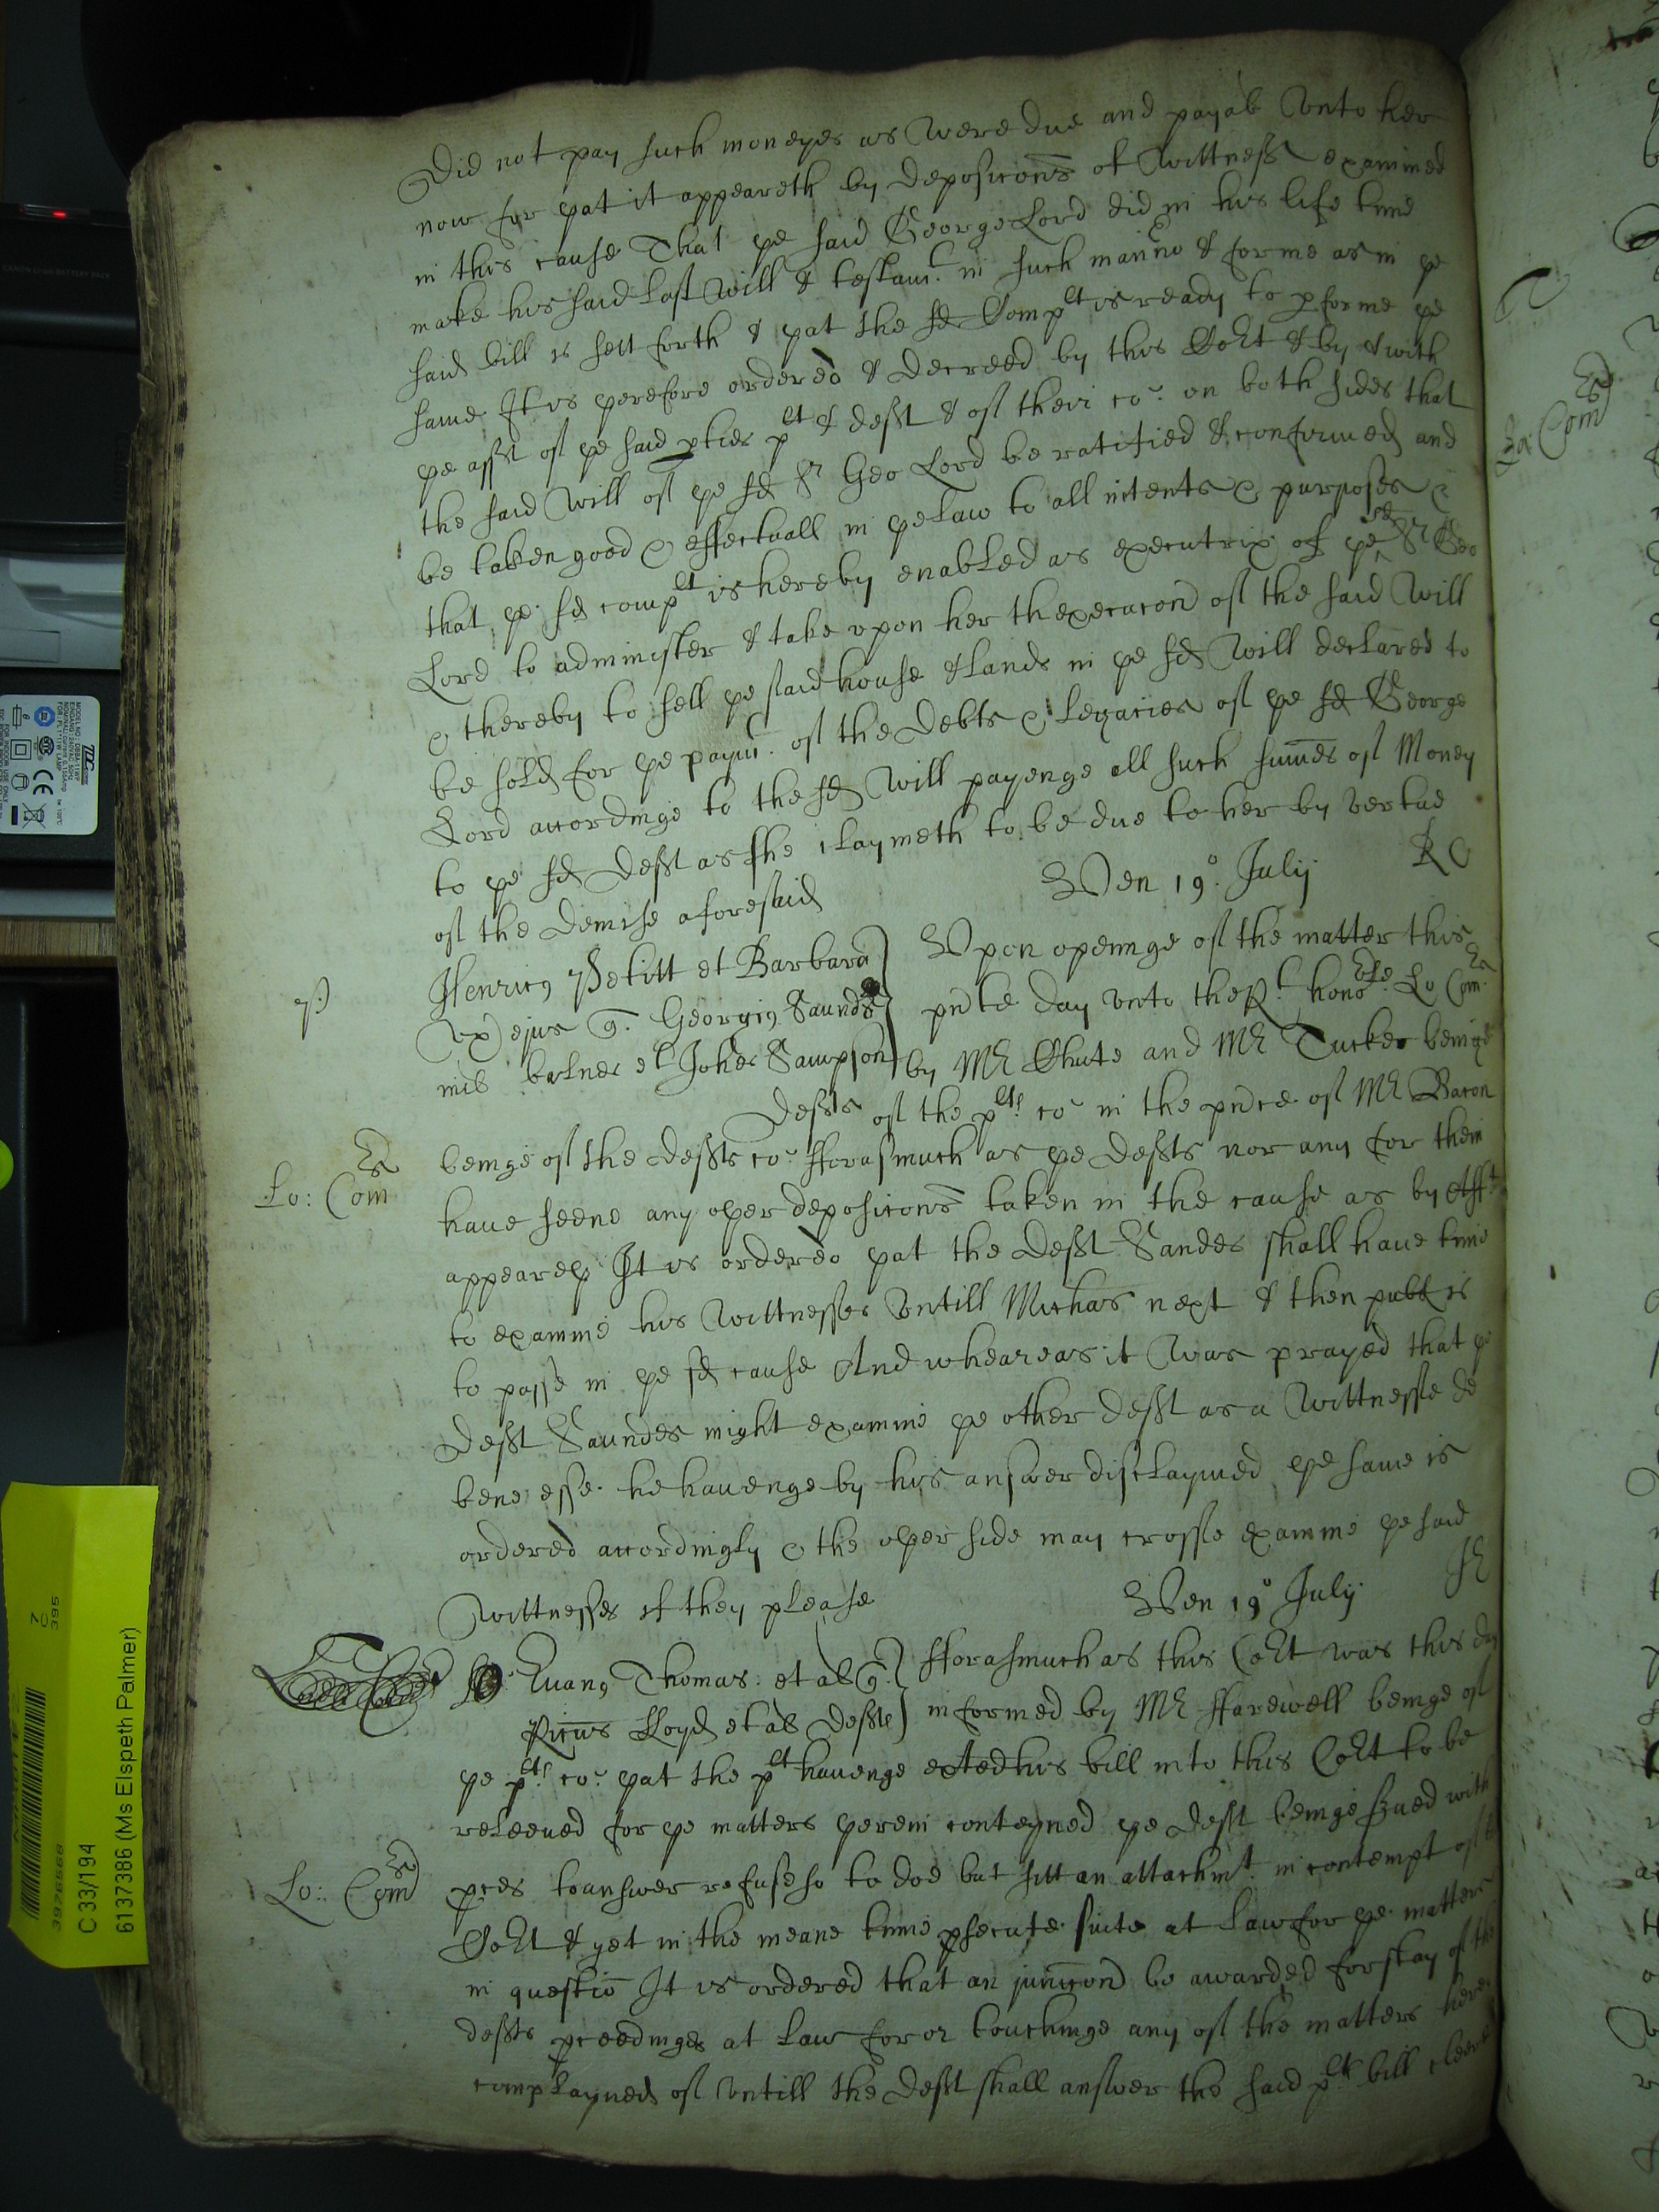 Did not pay such moneyes as were due and payab vnto her
now for yat it appeareth by deposicons of wittness examined
in this cause That ye said George Lord did in his life time
make his said last will & testamt. in such manner & forme as in ye
said bill is sett forth & yat the sd Complt is ready to pforme ye
same It is yerefore ordered & decreed by this Cort & by & with
ye asst of ye said pties plt & deft & of their co: on both sides that
the said will of ye sd Sr Geo Lord be ratified & confirmed and
be taken good & effectuall in ye law to all intents & purposes &
that ye sd complt is hereby enabled as executrix of ye sd Sr Geo
Lord to administer & take vpon her thexecucon of the said will
& thereby to sell ye said house & lands in ye sd will declared to
be sold for ye paymt. of the debts & legacies of ye sd George
Lord accordinge to the sd will payenge all such sumes of money
to ye sd deft as she claymeth to be due to her by vertue
of the demise aforesaid
Ven 19o. July RC
Henricus Petitt et Barbara
vx ejus q. Georgius Saunds
mil balnei et Johes Sampson
defts
Vpon openinge of the matter this
pnte day vnto the Rt. honoble. Lo Comrs
by Mr Chute and Mr Tucker beinge
of the plts co: in the pnce of Mr Bacon
Lo: Comrs
beinge of the defts co: fforasmuch as ye defts nor any for them
haue seene any oyer deposicons taken in the cause as by afft.
appeareth It is ordered yat the deft Sandes shall haue time
to examine his wittnesses vntill Michas next & then publ is
to passe in ye sd cause And wheareas it was prayed that ye
deft Saundes might examine ye other deft as a wittnesse de
bene esse he hauenge by his answer disclaymed ye same is
ordered accordingly & the oyer side may crosse examine ye said
wittnesses if they please
Ven 19o July
Euans Thomas et al q.
Ricus Lloyd et al defts
fforasmuch as this Cort was this day
informed by Mr ffarewell beinge of
ye plts. co: yat the plt hauenge exted his bill into this Cort to be
releeued for ye matters yerein conteyned ye deft beinge serued with
Lo: Comrs
pces to answer refuse so to doe but sitt an attachmt. in contempt of
Cort & yet in the meane time psecute suite at law for ye matters
in questio It is ordered that an junccon be awarded for stay of the
defts pceedinges at law for or touchinge any of the matters here
complayned of vntill the deft shall answer the said plts bill cleere
Lo: Comrs
C 33/194
6137386 (Ms Elspeth Palmer)
3976568
7
C
395
CANON Li-ion BATTERY PACK